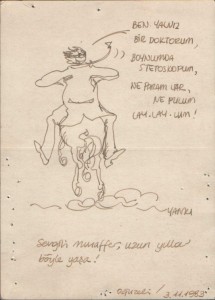 BEN YALNIZ
BİR DOKTORUM,
BOYNUMDA
STETOSKOPUM,
NE PARAM VAR,
NE PULUM
LAY-LAY-LUM!
YANKI
Sevgili Muzaffer, uzun yıllar
böyle yaşa!
3.11.1953